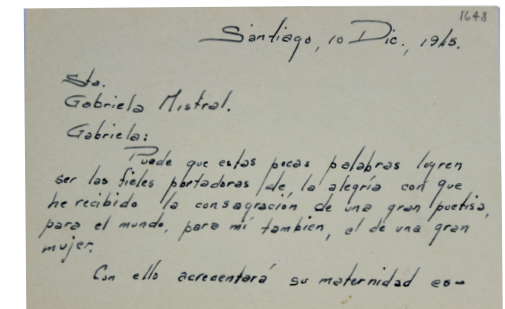 1648
Santiago, 10 Dic., 1945.
Sta.
Gabriela Mistral.
Gabriela:
Puede que estas pocas palabras logren
ser las fieles portadoras de, la alegría con que
he recibido la consagración de una gran poetisa,
para el mundo, para mí tambien, el de una gran
mujer.
Con ello acrecentará su maternidad es-